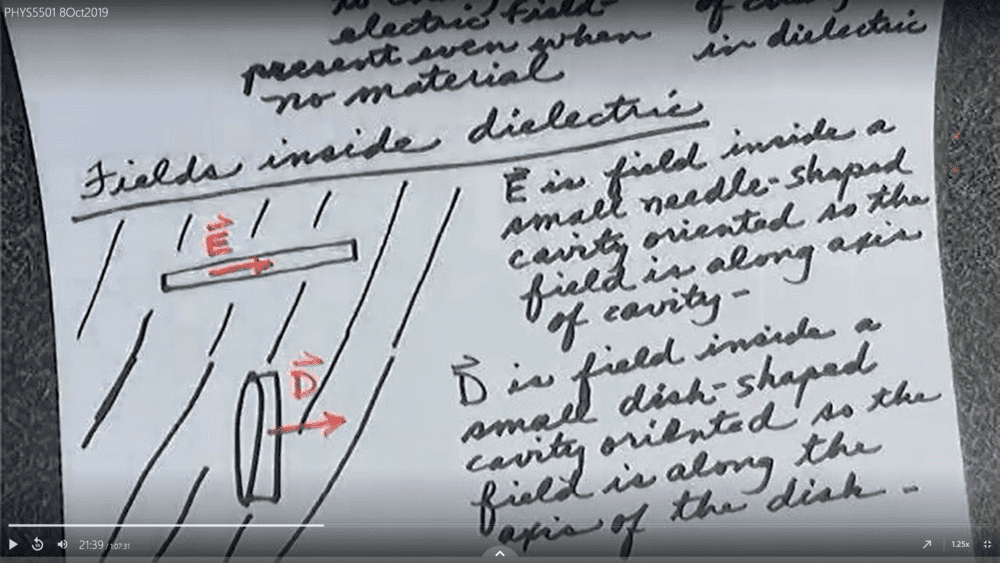 PHYS5501 8Oct2019
electric field-
present even when
no material
in dielectric
Fields inside dielectric
E
D
E is field inside a
small needle-shaped
cavity oriented so the
field is along axis
of cavity-
D is field inside a
small disk-shaped
cavity oriented so the
field is along the
axis of the disk-
21:39 / 1:07:31
1.25x